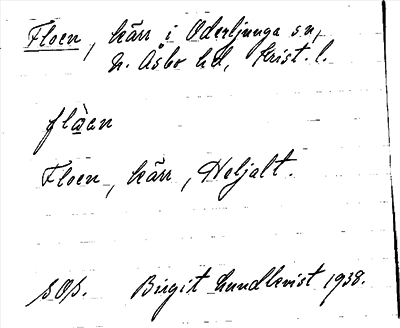 Floen, kärr i Oderljunga sn,
N. Åsbo hd, Krist. l.
flàen
Floen, kärr, Heljalt.
Birgit Lundkvist 1938.